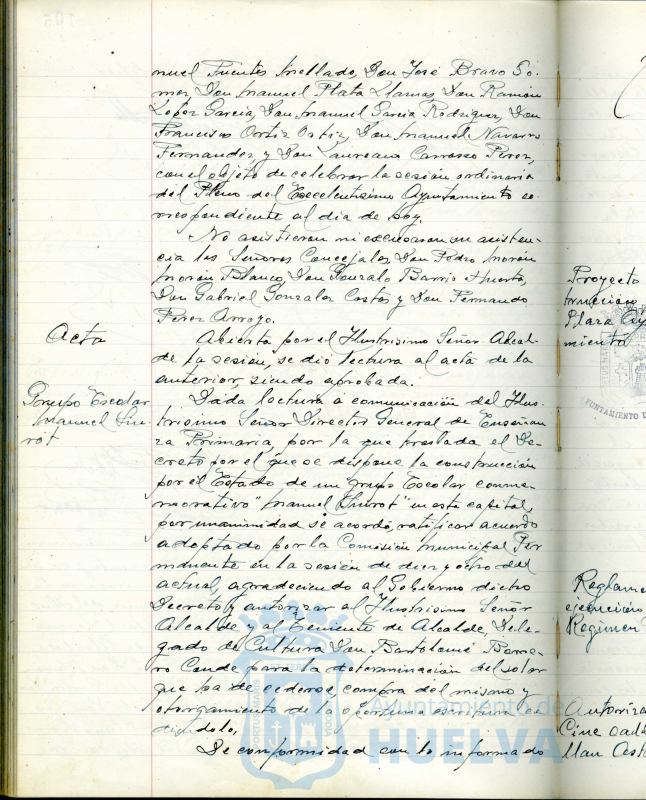 nuel Fuentes Mellado, Don José Bravo Gó-
mez, Don Manuel Plata Llamas, Don Ramón
Lopez Garcia, Don Manuel Garcia Rodriguez, Don
Francisco Ortiz Ortiz, Don Manuel Navarro
Fernandez y Don Laureano Carrasco Perez,
con el objeto de celebrar la sesión ordinaria
del Pleno del Excelentisimo Ayuntamiento co-
rrespondiente al dia de hoy.
No asistieron ni excusaron su asisten-
cia los Señores Concejales Don Pedro Morón
Morón Blanco, Don Gonzalo Barrio Huerta,
Don Gabriel Gonzalez Costas y Don Fernando
Perez Arroyo.
Acta
Abierta por el Ilustrisimo Señor Alcal-
de la sesión, se dió lectura al acta de la
anterior, siendo aprobada.
Grupo Escolar
Manuel Siu-
rot
Dada lectura a comunicación del Ilus-
trisimo Señor Director General de Enseñan
za Primaria por la que traslada el De-
creto por el que se dispone la construcción
por el Estado de un grupo Escolar conme-
morativo "Manuel Siurot" en esta capital,
por unanimidad se acordó, ratificar acuerdo
adoptado por la Comisión Municipal Per
manente en la sesión de diez y ocho del
actual, agradeciendo al Gobierno dicho
Decreto y autorizar al Ilustrisimo Señor
Alcalde y al Teniente de Alcalde, Dele-
gado de Cultura Don Bartolomé Borre-
ro Conde para la determinación del solar
que ha de cederse, compra del mismo y
otorgamiento de la oportuna escritura
De conformidad con lo informado
Proyecto
Plaza Ay
miento
AYUNTAMIENTO D
Reglame
ejecución
Regimen
Autoriza
Cine
Ayuntamiento de
HUELVA